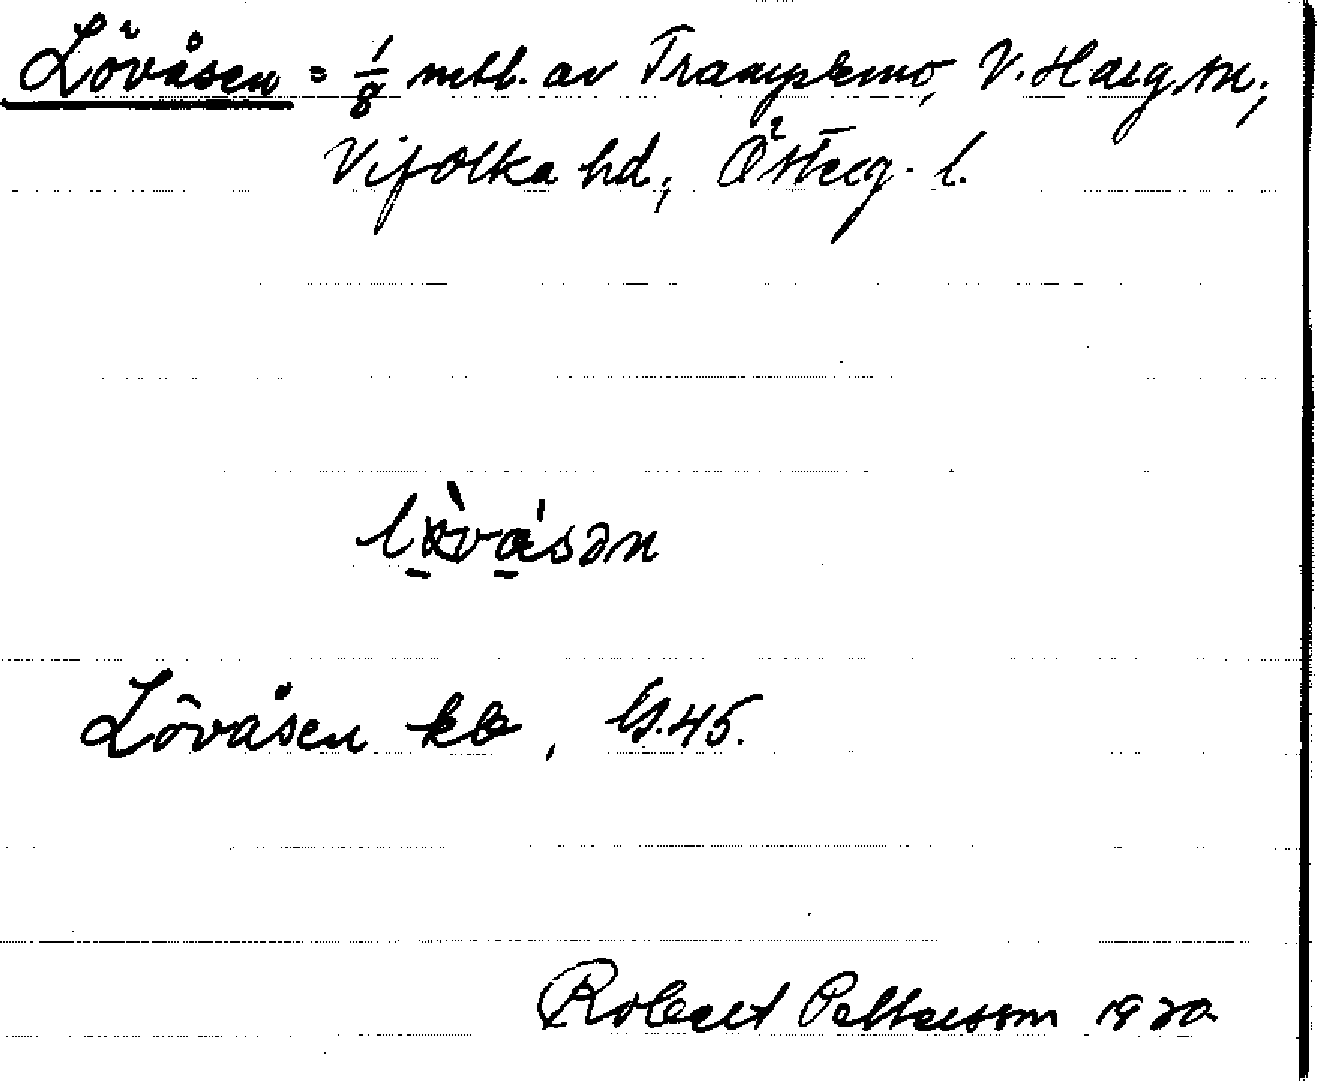 Lövåsen = 1/8 mtl. av Trampemo, V. Harg sn;
Vifolka hd, Österg. l.
lòvásən
Lövåsen kb, Gs.45.
Robert Pettersson 1920